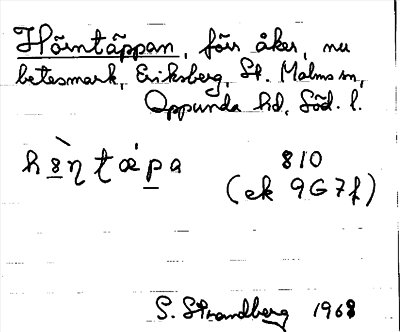 Hörntäppan, förr åker, nu
betesmark, Eriksberg, St. Malms sn,
Oppunda hd, Söd. l.
810
(ek 9G7f)
S. Strandberg 1968